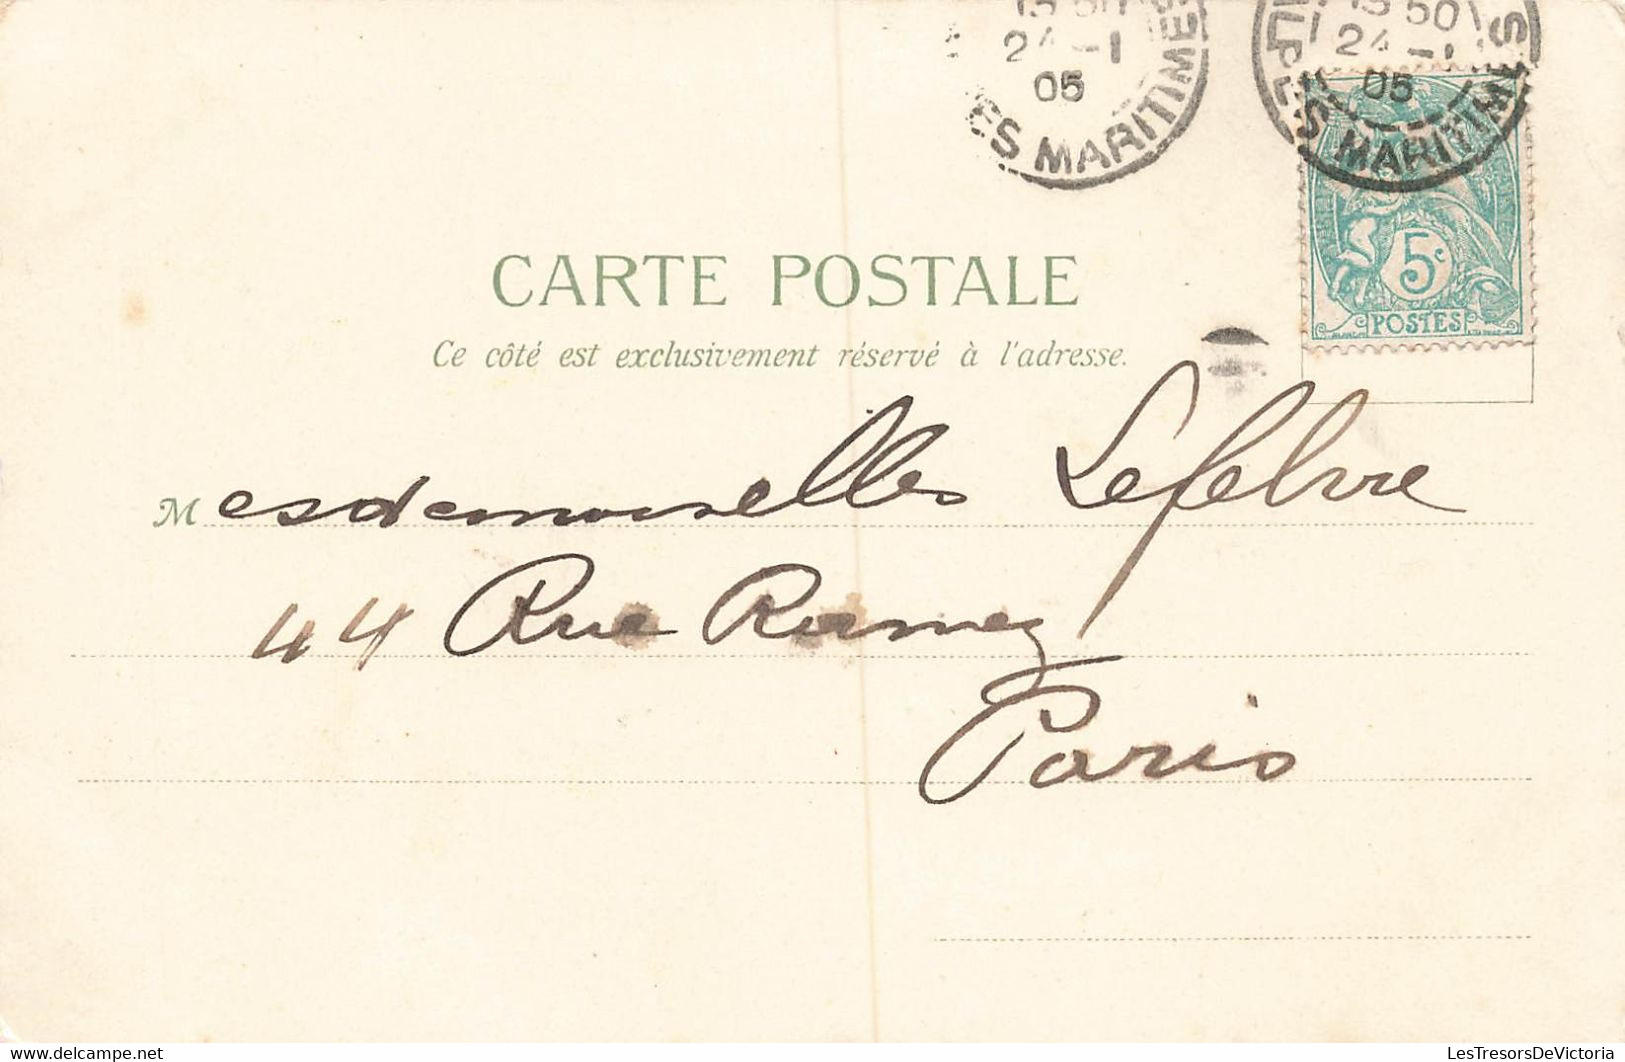 24 -1
05
ES MARITIMES
15 50
24 -1
05
ALPES MARITIMES
5c
POSTES
CARTE POSTALE
Ce côté est exclusivement réservé à l'adresse.
Mesdemoiselles Lefebvre
44 Rue Ramey
Paris
www.delcampe.net
LesTresorsDeVictoria